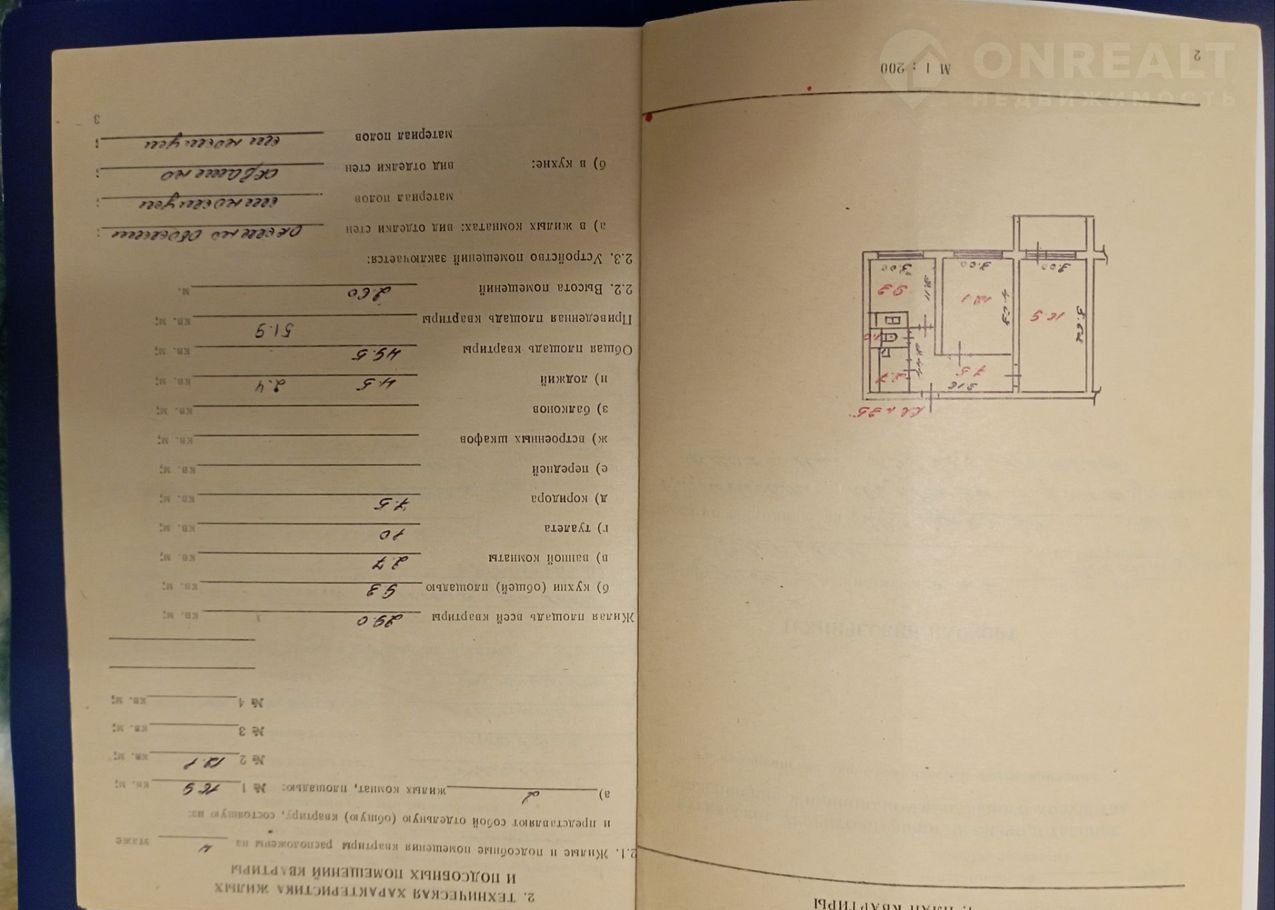 ONREALT
НЕДВИЖИМОСТЬ
1. ПЛАН КВАРТИРЫ
16.9
12.1
9.3
7.5
2.7
1.0
5.62
3.00
3.00
3.00
М 1 : 200
2
2. ТЕХНИЧЕСКАЯ ХАРАКТЕРИСТИКА ЖИЛЫХ
И ПОДСОБНЫХ ПОМЕЩЕНИЙ КВАРТИРЫ
2.1. Жилые и подсобные помещения квартиры расположены на 4 этаже
и представляют собой отдельную (общую) квартиру, состоящую из:
а) 2 жилых комнат, площадью: № 1 16.9 кв. м;
№ 2 12.1 кв. м;
№ 3 кв. м;
№ 4 кв. м;
Жилая площадь всей квартиры 29.0 кв. м;
б) кухни (общей) площадью 9.3 кв. м;
в) ванной комнаты 2.7 кв. м;
г) туалета 1.0 кв. м;
д) коридора 7.5 кв. м;
е) передней кв. м;
ж) встроенных шкафов кв. м;
з) балконов кв. м;
и) лоджий 4.5 2.4 кв. м;
Общая площадь квартиры 49.5 кв. м;
Приведенная площадь квартиры 51.9 кв. м;
2.2. Высота помещений 2.60 м.
2.3. Устройство помещений заключается:
а) в жилых комнатах: вид отделки стен оклеено обоями ;
материал полов линолеум ;
б) в кухне: вид отделки стен окрашено ;
материал полов линолеум ;
3